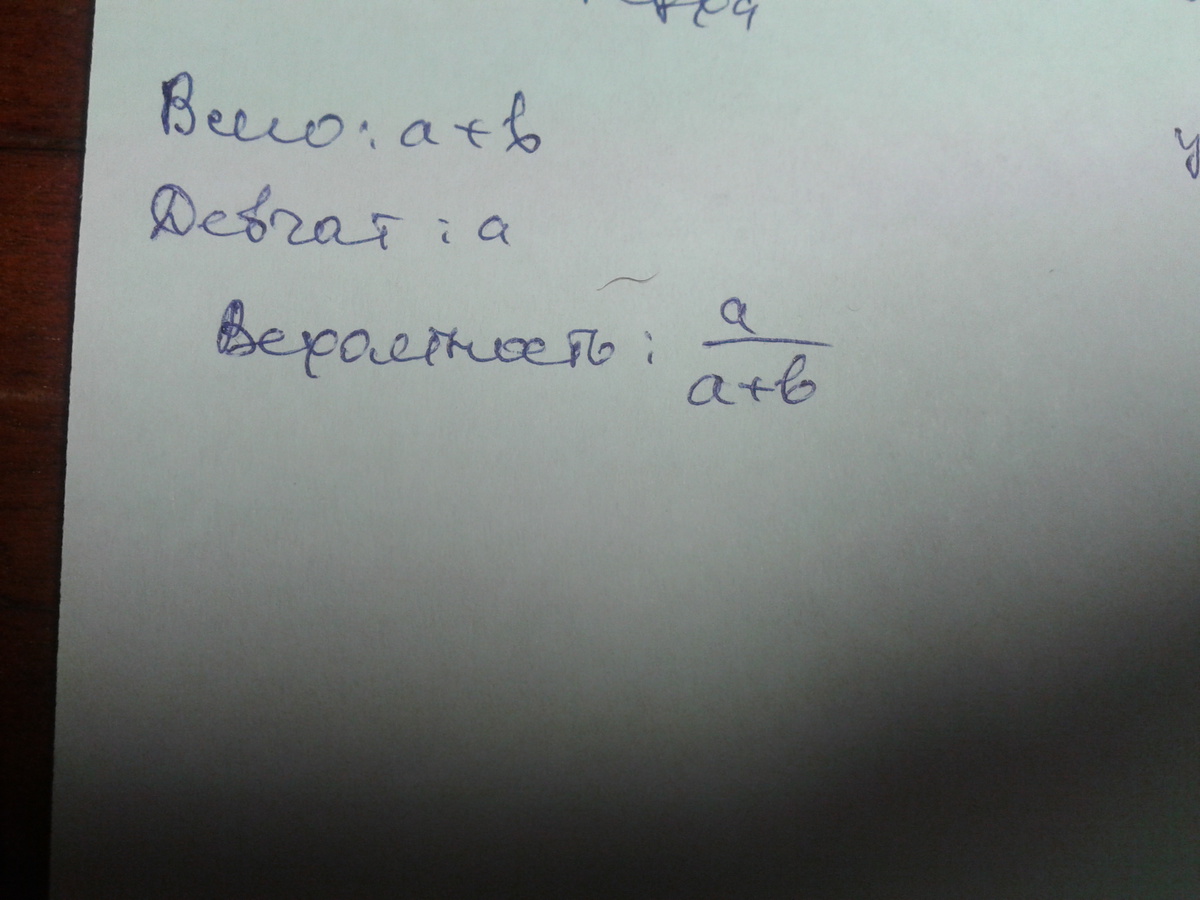 Всего: a+b
Девчат: a
Вероятность: a/(a+b)